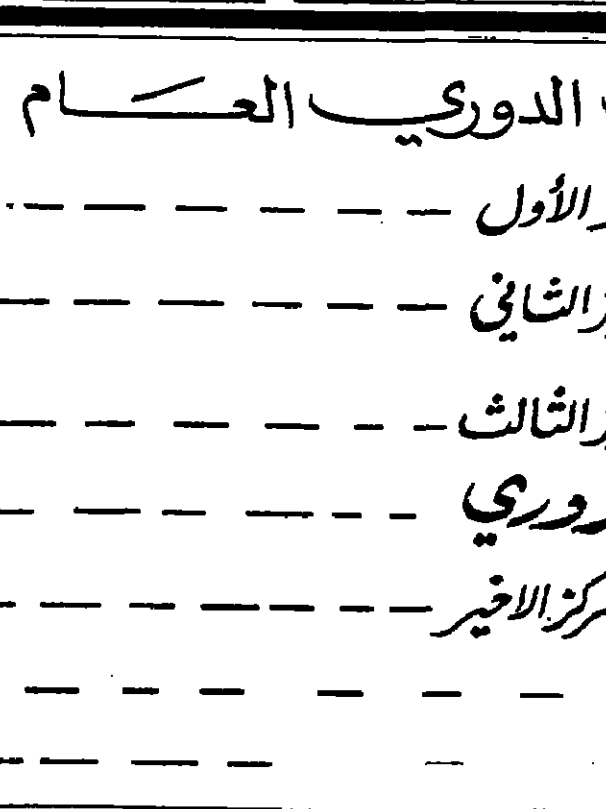 الدوري العام
الأول
الثاني
الثالث
الاخير